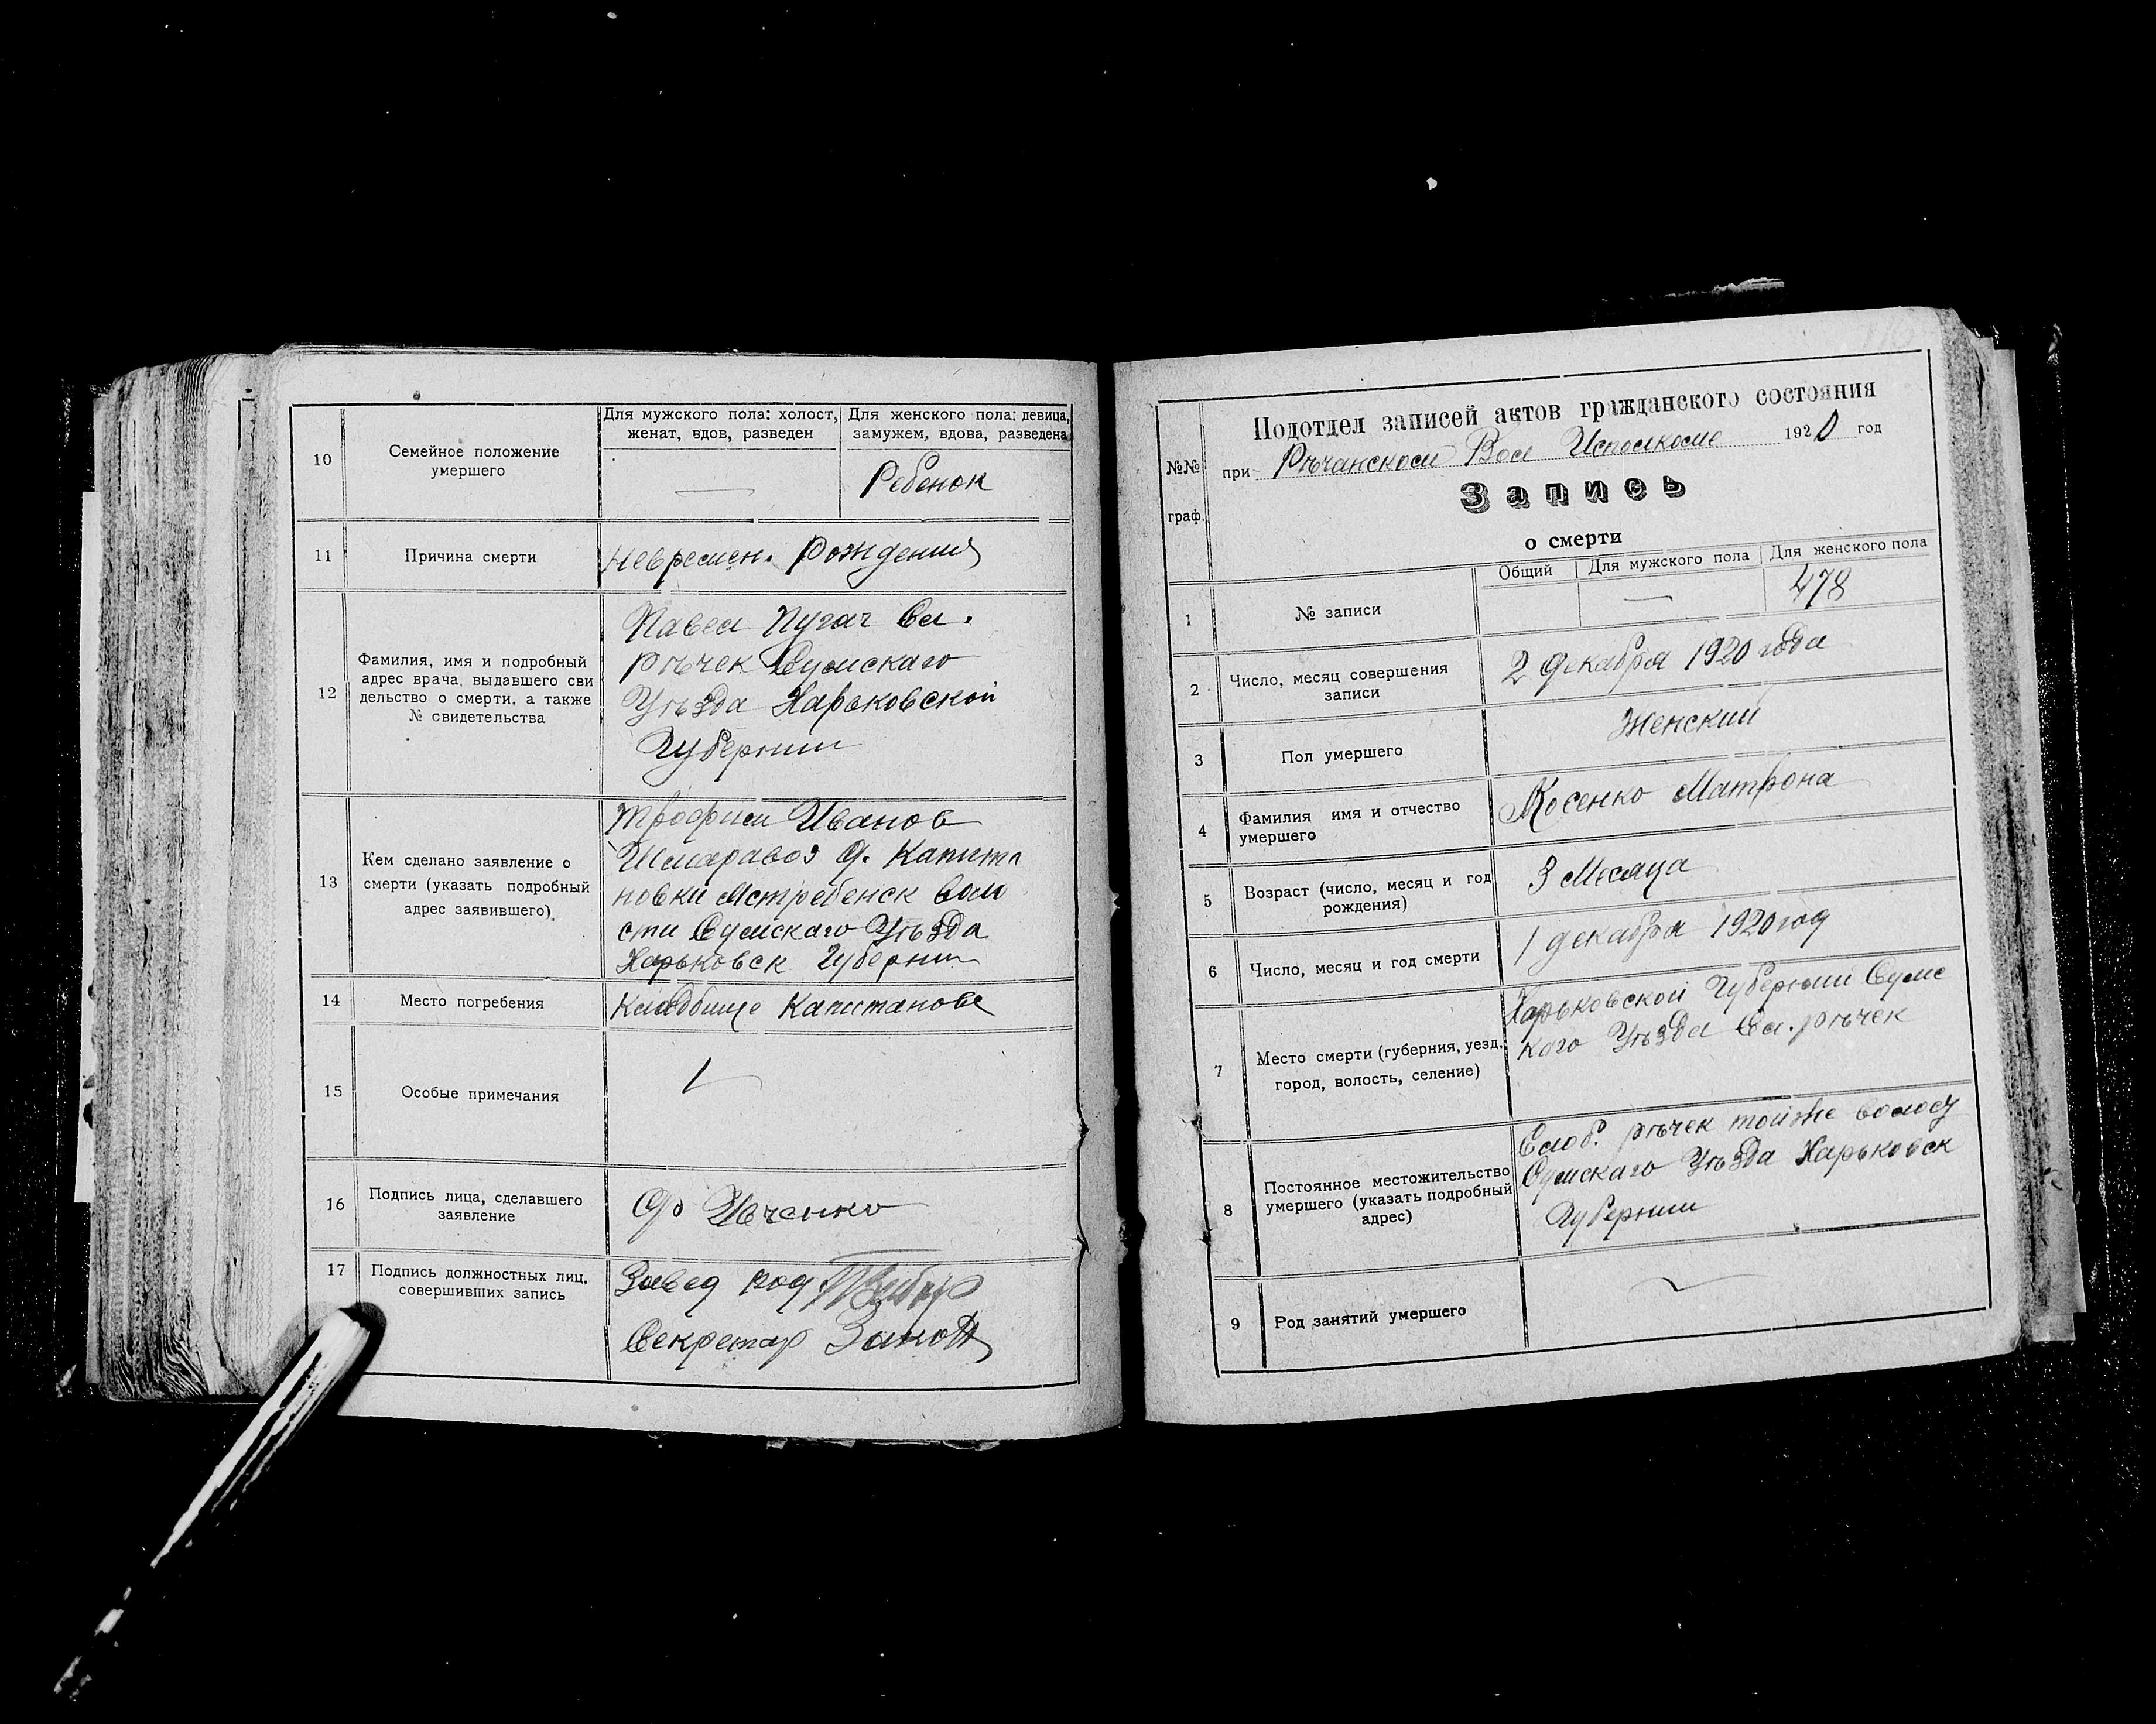 10
Семейное положение
умершего
Для мужского пола: холост,
женат, вдов, разведен
Для женского пола: девица,
замужем, вдова, разведена
Ребенок
11
Причина смерти
Невремен. Рождения
12
Фамилия, имя и подробный
адрес врача, выдавшего сви
дельство о смерти, а также
№ свидетельства
Павел Пугач Сл.
рѣчек Сумскаго
Уѣзда Харьковской
Губернии
13
Кем сделано заявление о
смерти (указать подробный
адрес заявившего)
Трофим Иванов
д. Капита
новки Истребенск воло
сти Сумскаго Уѣзда
Харьковск Губернии
14
Место погребения
Кладбище Капитанове
15
Особые примечания
16
Подпись лица, сделавшего
заявление
Ивченко
17
Подпись должностных лиц,
совершивших запись
Завед под
Секретар
№№
граф.
Подотдел записей актов гражданского состояния
при Рѣчанском Вол Исполкоме 1920 год
Запись
о смерти
1
№ записи
Общий
Для мужского пола
Для женского пола
478
2
Число, месяц совершения
записи
2 декабря 1920 года
3
Пол умершего
Женский
4
Фамилия имя и отчество
умершего
Косенко Матрона
5
Возраст (число, месяц и год
рождения)
3 Месяца
6
Число, месяц и год смерти
1 декабря 1920 год
7
Место смерти (губерния, уезд,
город, волость, селение)
Харьковской Губернии Сумс
кого Уѣзда Сл. рѣчек
8
Постоянное местожительство
умершего (указать подробный
адрес)
Слоб. рѣчек тойже
Сумскаго Уѣзда Харьковск
Губернии
9
Род занятий умершего